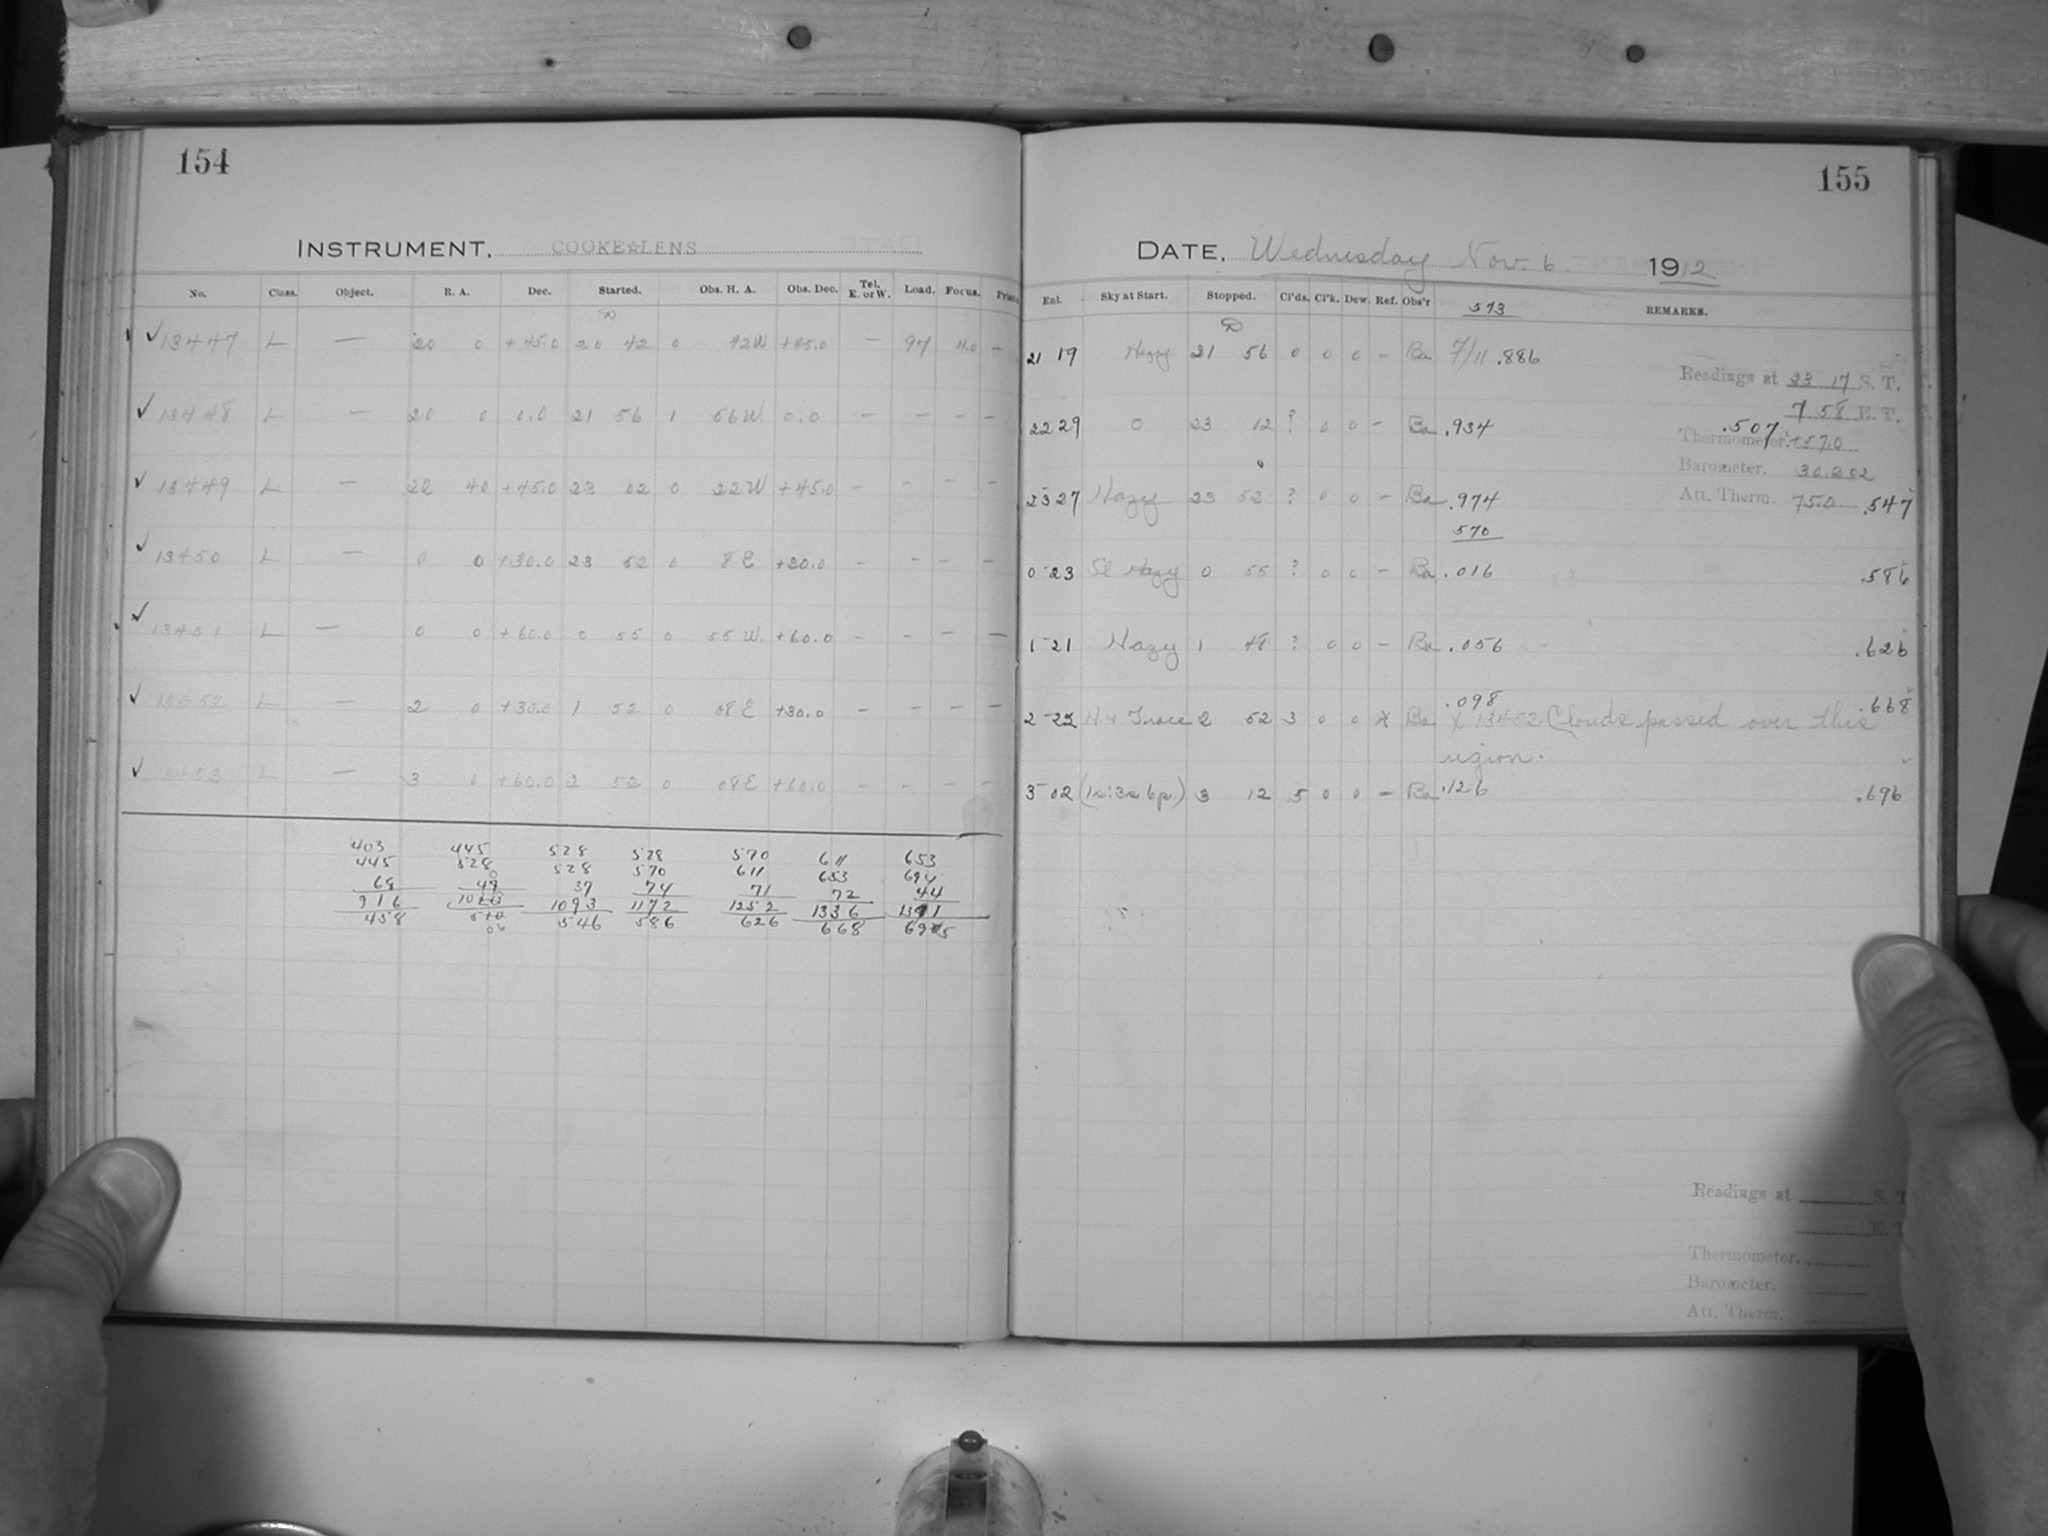 154
INSTRUMENT. COOKE☆LENS
No. Class. Object. R. A. Dec. Started. Obs. H. A. Obs. Dec. Tel. E. or W. Load. Focus.
✓ 13447 L — 20 0 +45.0 20 42 0 42W +45.0 — 97 11.0 —
✓ 13448 L — 20 0 0.0 21 56 1 56W. 0.0 — — — —
✓ 13449 L — 22 40 +45.0 23 02 0 22W +45.0 — — — —
✓ 13450 L — 0 0 +30.0 23 52 0 8E +30.0 — — — —
✓ 13451 L — 0 0 +60.0 0 55 0 55W. +60.0 — — — —
✓ 13452 L — 2 0 +30.0 1 52 0 08E +30.0 — — — —
✓ 13453 L — 3 0 +60.0 2 52 0 08E +60.0 — — — —
403 445 528 528 570 611 653
445 528 528 570 611 653 694
68 37 74 71 72 44
916 1093 1172 1252 1336
458 546 586 626 668
155
DATE. Wednesday Nov. 6 1912
Enl. Sky at Start. Stopped. Cl'ds. Cl'k. Dew. Ref. Obs'r 573 REMARKS.
21 19 Hazy 21 56 0 0 0 – Ba 7/11 .886
Readings at 23 17 S. T.
7 58 E. T.
22 29 0 23 02 ? 0 0 – Ba .934 .507
Thermometer. +57.0
Barometer. 30.202
23 27 Hazy 23 52 ? 0 0 – Ba .974 Att. Therm. 75.0 .547
570
0 23 Sl Hazy 0 55 ? 0 0 – Ba .016 .586
1 21 Hazy 1 48 ? 0 0 – Ba .056 .626
.098 .668
2 22 2 52 3 0 0 X Ba X 13452 Clouds passed over this
region.
3 02 3 12 5 0 0 – Ba .126 .696
Readings at S. T
E. T
Thermometer.
Barometer.
Att. Therm.